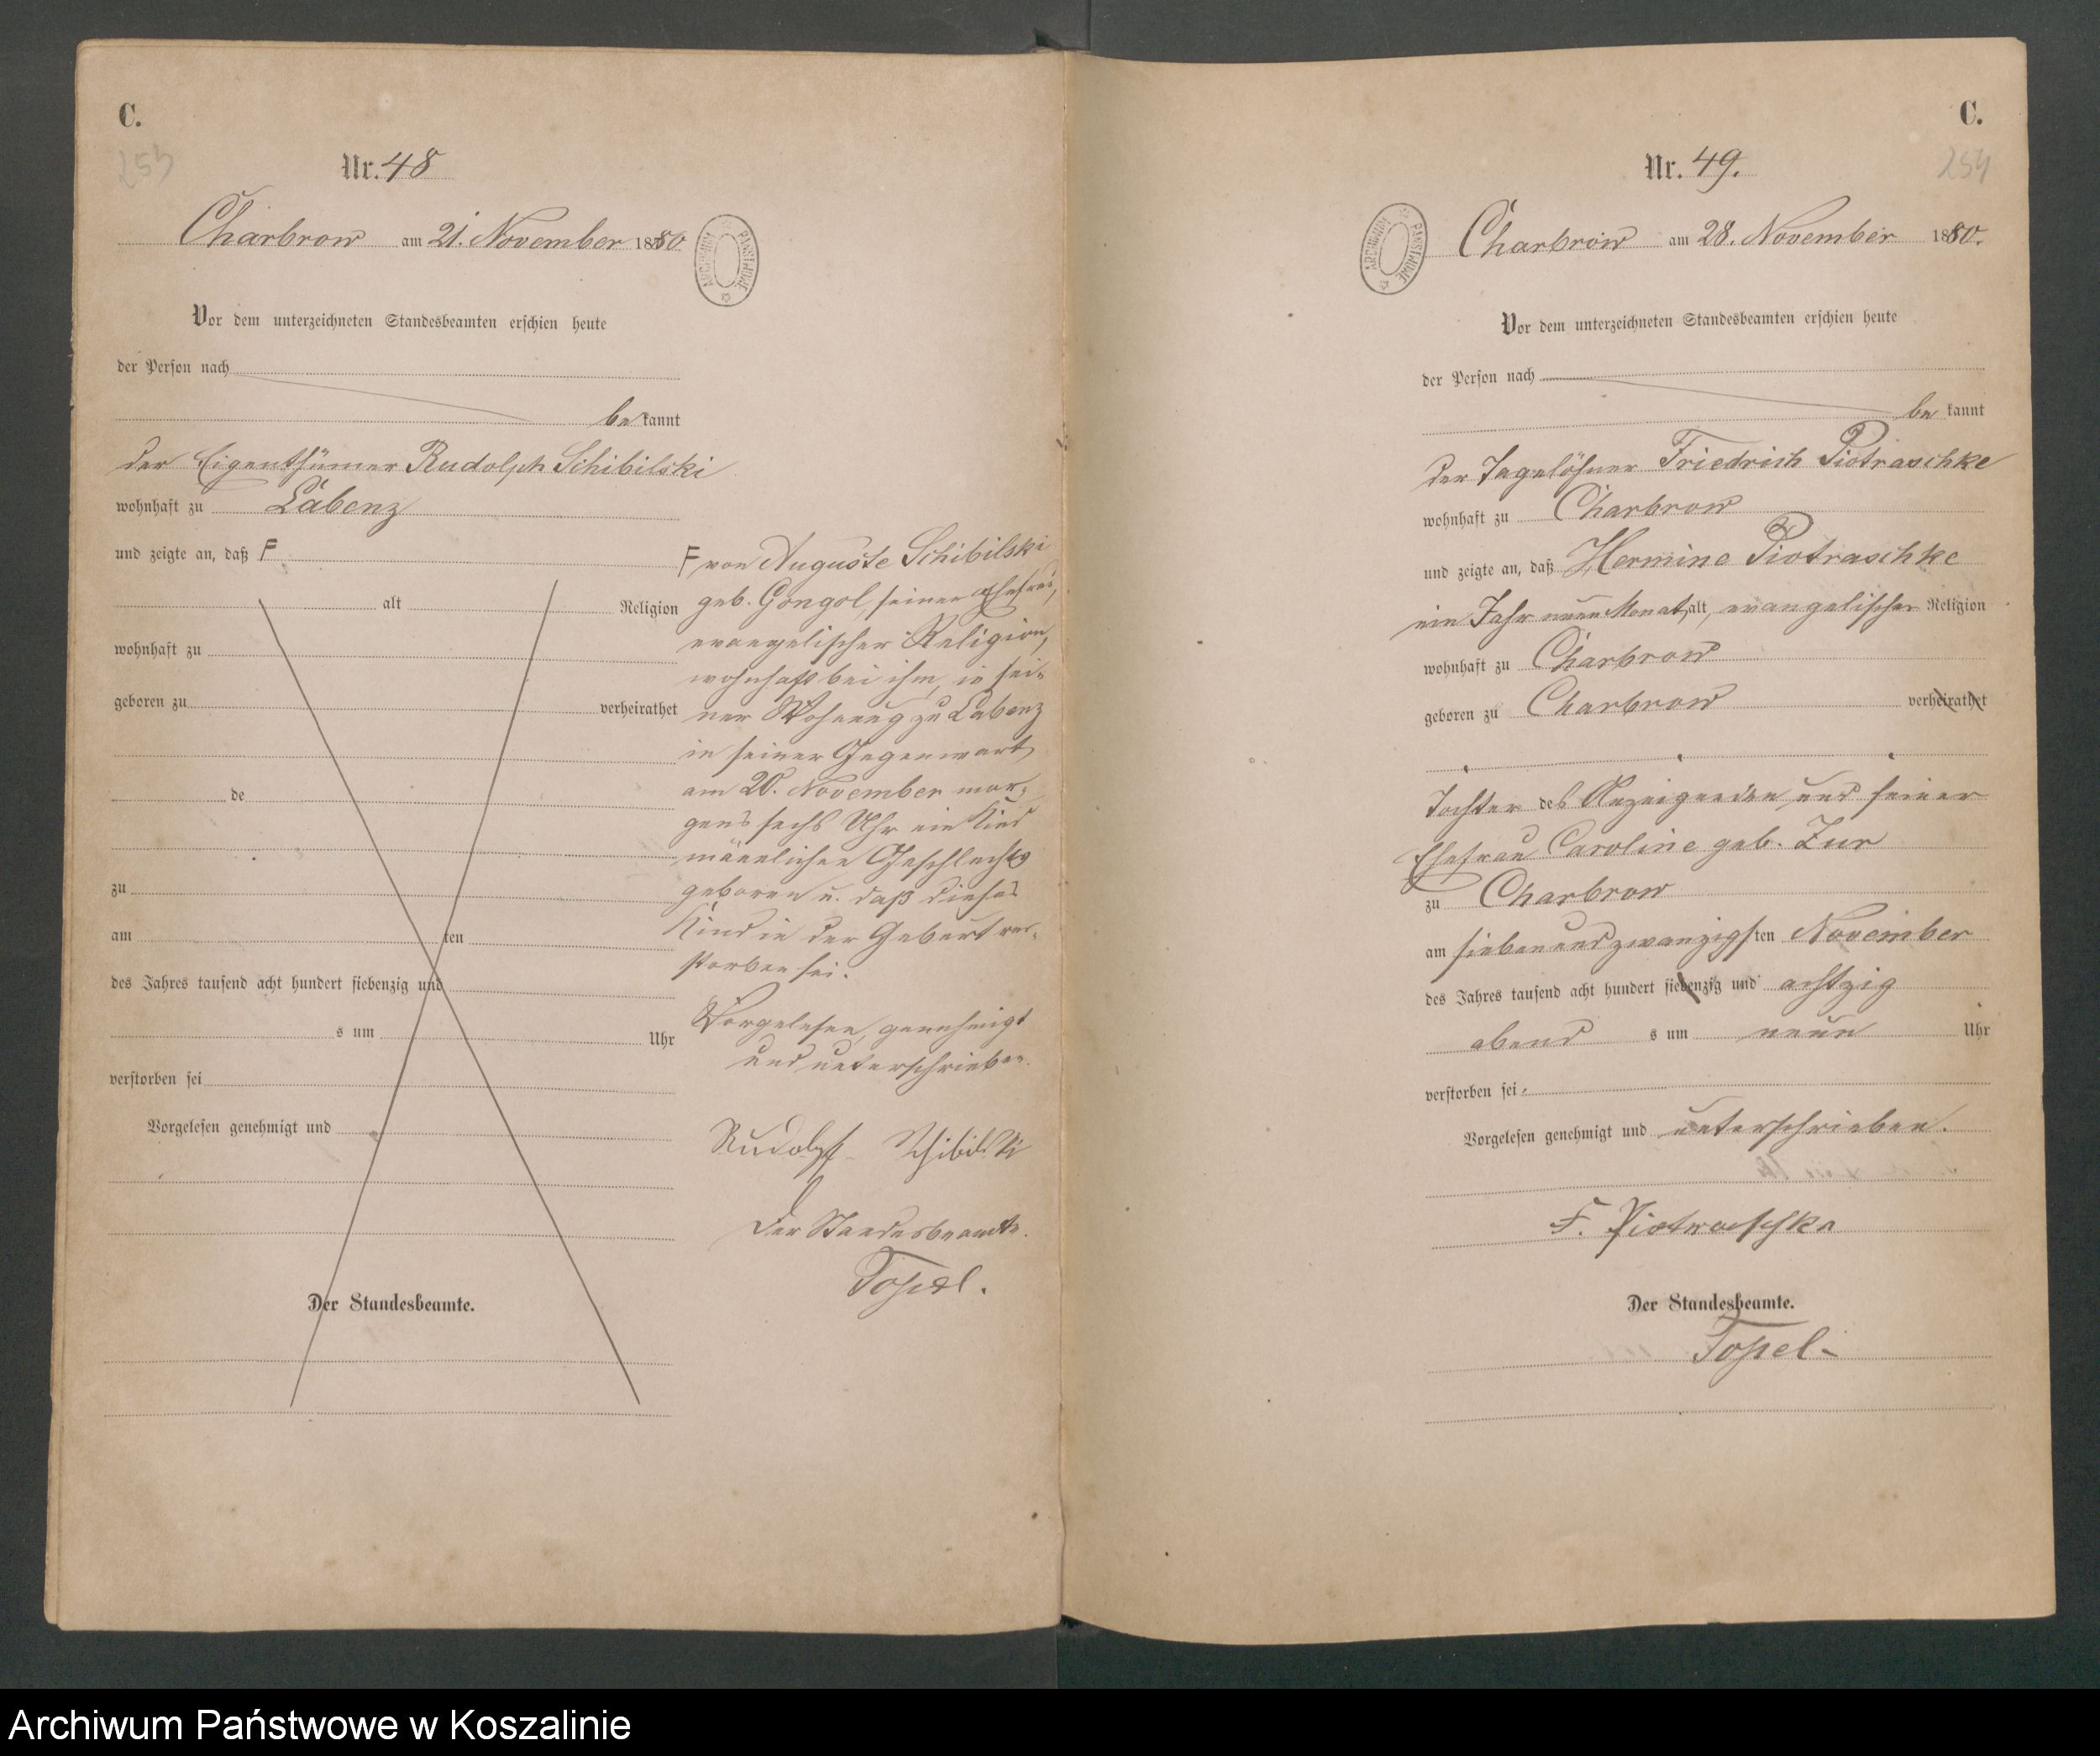 C.
253
Nr. 48
Charbrow am 21. November 1880.
ARCHIWUM PAŃSTWOWE
Vor dem unterzeichneten Standesbeamten erschien heute
der Person nach
bekannt
der Eigenthümer Rudolph Schibilski
wohnhaft zu Labenz
und zeigte an, daß F
alt Religion
wohnhaft zu
geboren zu verheirathet
de
zu
am ten
des Jahres tausend acht hundert siebenzig und
s um Uhr
verstorben sei
Vorgelesen genehmigt und
Der Standesbeamte.
F von Auguste Schibilski
geb. Gongol, seiner Ehefrau,
evangelischer Religion,
wohnhaft bei ihm, in sei-
ner Wohnung zu Labenz
in seiner Gegenwart
am 20. November mor-
gens sechs Uhr ein Kind
männlichen Geschlechts
geboren u. daß dieses
Kind in der Geburt ver-
storben sei.
Vorgelesen, genehmigt
und unterschrieben.
Rudolf Schibilski
Der Standesbeamte.
Topel.
C.
254
Nr. 49.
ARCHIWUM PAŃSTWOWE
Charbrow am 28. November 1880.
Vor dem unterzeichneten Standesbeamten erschien heute
der Person nach
be kannt
der Tagelöhner Friedrich Piotraschke
wohnhaft zu Charbrow
und zeigte an, daß Hermine Piotraschke
ein Jahr neun Monat alt, evangelischer Religion
wohnhaft zu Charbrow
geboren zu Charbrow verheirathet
Tochter des Anzeigenden und seiner
Ehefrau Caroline geb. Zur
zu Charbrow
am siebenundzwanzigsten November
des Jahres tausend acht hundert siebenzig und achtzig
abend s um neun Uhr
verstorben sei.
Vorgelesen genehmigt und unterschrieben.
F. Piotraschka
Der Standesbeamte.
Topel.
Archiwum Państwowe w Koszalinie